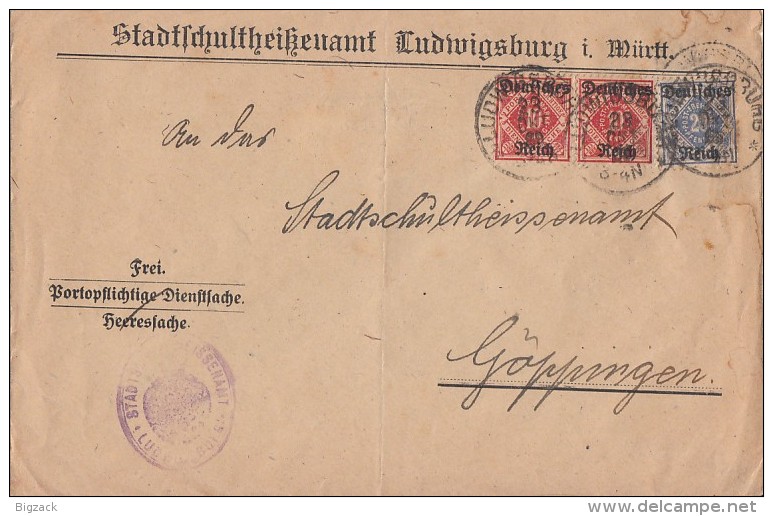 Stadtschultheißenamt Ludwigsburg i. Württ.
Deutsches Deutsches Deutsches
Reich Reich Reich
3-4N
An das
Stadtschultheissenamt
Frei.
Portopflichtige Dienstsache.
Heeressache.
Göppingen.
Bigzack
delcampe.net